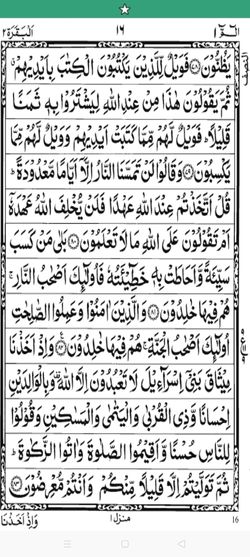 الٓمّٓ ١ ١٦ اَلْبَقَرَة ٢
يَظُنُّوْنَ ﴿۷۸﴾ فَوَيْلٌ لِّلَّذِيْنَ يَكْتُبُوْنَ الْكِتٰبَ بِاَيْدِيْهِمْ
ثُمَّ يَقُوْلُوْنَ هٰذَا مِنْ عِنْدِ اللّٰهِ لِيَشْتَرُوْا بِهٖ ثَمَنًا
قَلِيْلًا ؕ فَوَيْلٌ لَّهُمْ مِّمَّا كَتَبَتْ اَيْدِيْهِمْ وَوَيْلٌ لَّهُمْ مِّمَّا
يَكْسِبُوْنَ ﴿۷۹﴾ وَقَالُوْا لَنْ تَمَسَّنَا النَّارُ اِلَّاۤ اَيَّامًا مَّعْدُوْدَةً ؕ
قُلْ اَتَّخَذْتُمْ عِنْدَ اللّٰهِ عَهْدًا فَلَنْ يُّخْلِفَ اللّٰهُ عَهْدَهٗۤ
اَمْ تَقُوْلُوْنَ عَلَى اللّٰهِ مَا لَا تَعْلَمُوْنَ ﴿۸۰﴾ بَلٰى مَنْ كَسَبَ
سَيِّئَةً وَّاَحَاطَتْ بِهٖ خَطِيْٓـَٔتُهٗ فَاُولٰٓئِكَ اَصْحٰبُ النَّارِ ۚ
هُمْ فِيْهَا خٰلِدُوْنَ ﴿۸۱﴾ وَالَّذِيْنَ اٰمَنُوْا وَعَمِلُوا الصّٰلِحٰتِ
اُولٰٓئِكَ اَصْحٰبُ الْجَنَّةِ ۚ هُمْ فِيْهَا خٰلِدُوْنَ ﴿۸۲﴾ وَاِذْ اَخَذْنَا
مِيْثَاقَ بَنِيْۤ اِسْرَآءِيْلَ لَا تَعْبُدُوْنَ اِلَّا اللّٰهَ ۟ وَبِالْوَالِدَيْنِ
اِحْسَانًا وَّذِي الْقُرْبٰى وَالْيَتٰمٰى وَالْمَسٰكِيْنِ وَقُوْلُوْا
لِلنَّاسِ حُسْنًا وَّاَقِيْمُوا الصَّلٰوةَ وَاٰتُوا الزَّكٰوةَ ؕ
ثُمَّ تَوَلَّيْتُمْ اِلَّا قَلِيْلًا مِّنْكُمْ وَاَنْتُمْ مُّعْرِضُوْنَ ﴿۸۳﴾
وَاِذْ اَخَذْنَا منزل ١ 16